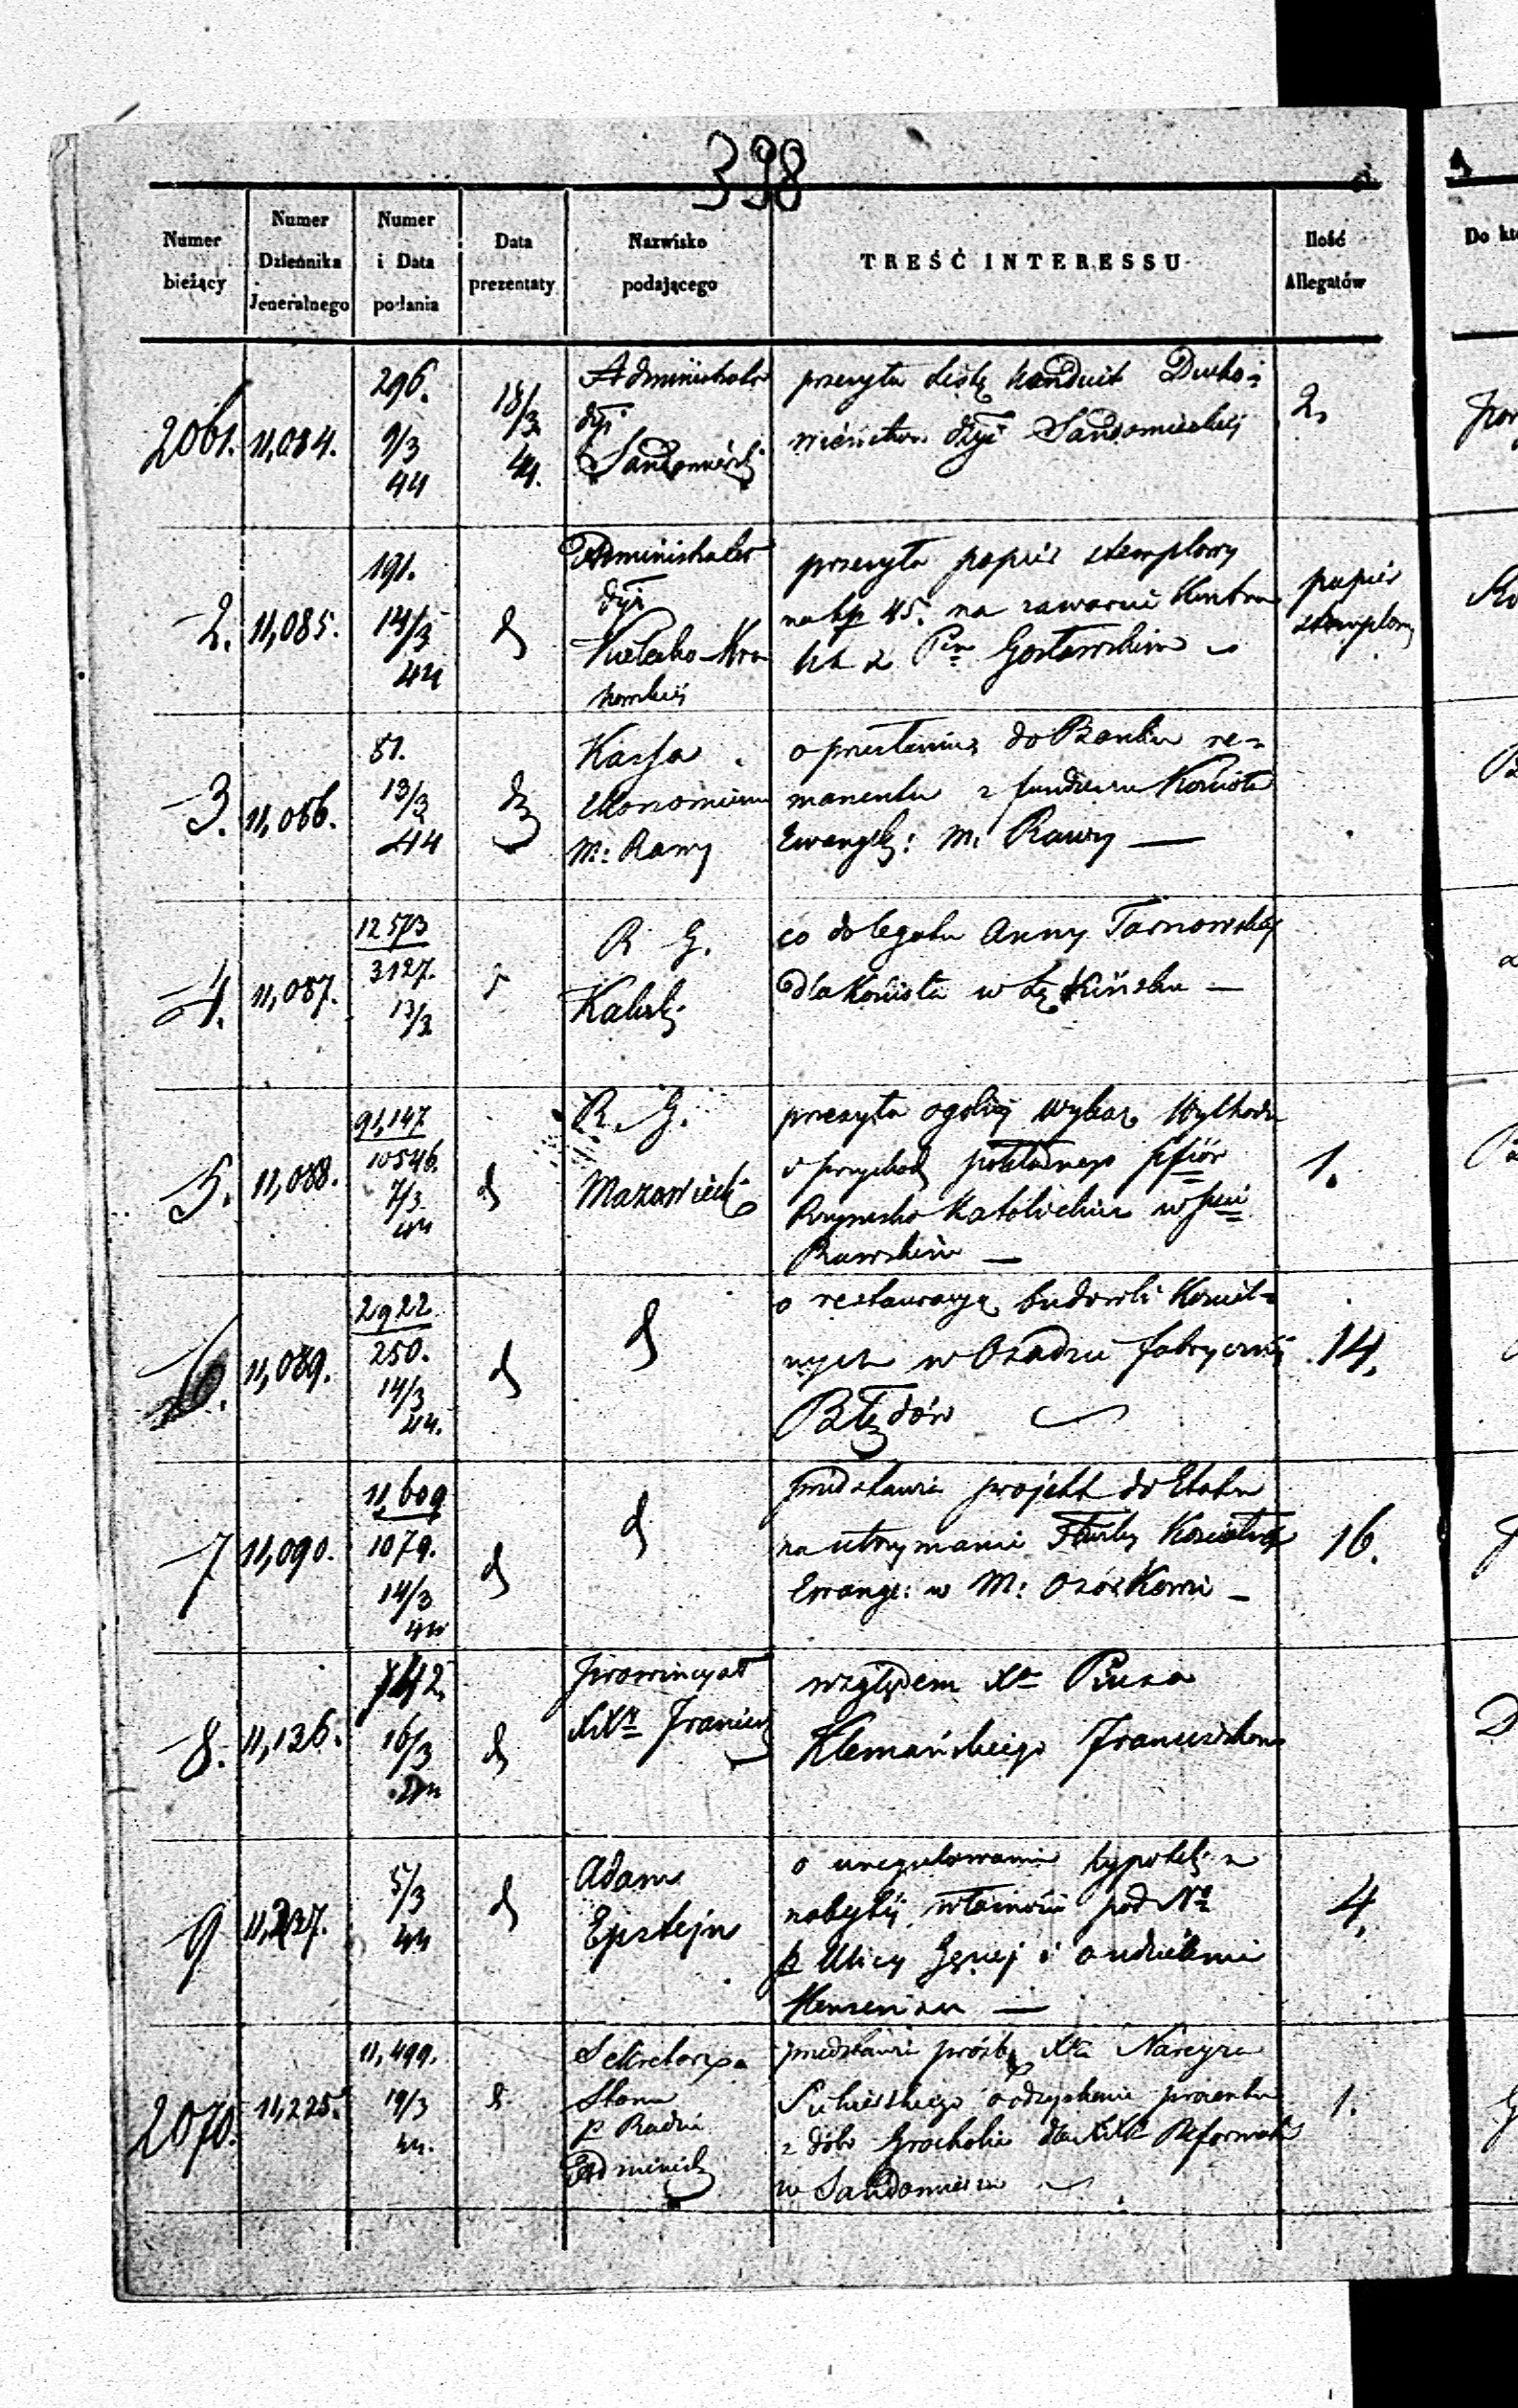 398
Numer bieżący
Numer Dziennika Jeneralnego
Numer i Data podania
Data prezentaty
Nazwisko podającego
TREŚĆ INTERESSU
Ilość Allegatów
2061. 11,084.
296.
9/3
44
18/3
44.
Administrator
dyi
przesyła Listę konduit Ducho=
wieństwa dyi Sandomirskiej
2.
2. 11,085.
191.
14/3
44
d
Administrator
dyi
Kielecko-Kra
kowskiej
przesyła papier stemplowy
na zawarcie Kontra
ktu z Pem Gosławskim
papier
stemplowy
3. 11,086.
81.
13/3
44
Kassa
Ekonomiczna
M: Rawy
o przesłaniu do Banku re=
manentu z funduszu Kościoła
Ewangel: M. Rawy —
4. 11,087.
12573
3127.
13/3
R. G.
Kalisk:
co do legatu Anny Tarnowskiej
dla Kościoła w —
5. 11,088.
91,147
10546.
7/3
44
d
R. G.
Mazowiecki
przesyła ogólny wykaz
Rzymsko Katolickie w
Rawskim —
1.
6. 11,089.
2922
250.
14/3
44.
d
d
o restauracyą budowli Kościel=
nych w Osadzie fabrycznej
Błędów
14.
7 11,090.
11,609
1079.
14/3
44
d
d
przedstawia projekt do Etatu
na utrzymanie Służby Kościelnej
Ewange: w M: Ozorkowie —
16.
8. 11,136.
742.
16/3
44
d
Prowincyał
XXw Francisz
względem Xa
Klemańskiego Franciszkana
9
5/3
44
d
Adam
Epstejn
o uregulowanie hypoteki z
nabytej własności pod No
p Ulicy Gęsiej i o udzielenie
Konsensu —
4.
2070. 11,225.
11,499.
19/3
44.
d
Sekretarz
Stanu
p Radzie
Administ
przedstawia prośbę Xa Narcyza
o odzyskanie procentu
z dóbr Grocholice dla XX Reformatów
w Sandomierzu
1.
Do kt